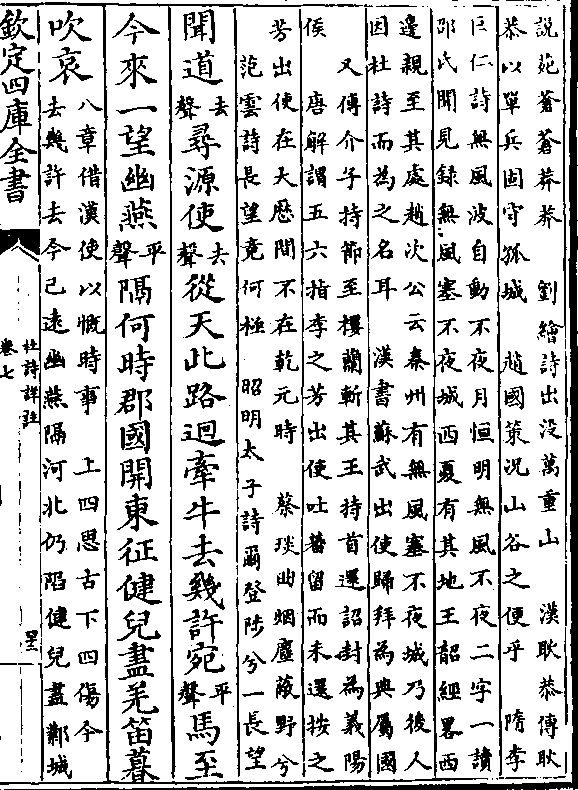 說苑蒼蒼莽莽　劉繪詩出没萬重山　漢耿恭傳耿
恭以單兵固守孤城　趙國策况山谷之便乎　隋李
巨仁詩無風波自動不夜月恒明無風不夜二字一讀
邵氏聞見録無風塞不夜城西夏有其地王韶經畧西
邊親至其處趙次公云秦州有無風塞不夜城乃後人
因杜詩而為之名耳　漢書蘇武出使歸拜為典屬國
又傳介子持節至樓蘭斬其王持首還詔封為義陽
侯　唐解謂五六指李之芳出使吐蕃留而未還按之
芳出使在大厯間不在乾元時　蔡琰曲烟塵蔽野兮
范雲詩長望竟何極　昭明太子詩爾登陟兮一長望
聞道去聲尋源使去聲從天此路迴牽牛去幾許宛平聲馬至
今來一望幽燕平聲隔何時郡國開東征健兒盡羌笛暮
吹哀八章借漢使以慨時事　上四思古下四傷今
去幾許去今已遠幽燕隔河北仍陷健兒盡鄴城
欽定四庫全書
杜詩詳註
卷七